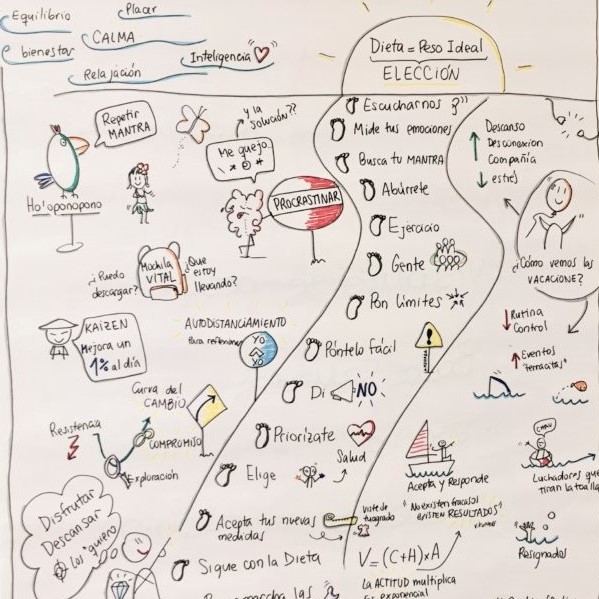 Equilibrio
Placer
CALMA
bienestar
Inteligencia
Relajación
Dieta = Peso Ideal
ELECCIÓN
Repetir
MANTRA
Ho'oponopono
y la
solución??
Me quejo
PROCRASTINAR
Mochila
VITAL
¿Puedo
descargar?
¿Que
estoy
llevando?
KAIZEN
Mejora un
1% al día
AUTODISTANCIAMIENTO
Para reflexionar
YO
YO
Curva del
CAMBIO
Resistencia
COMPROMISO
Exploración
Disfrutar
Descansar
Los "quiero"
Escucharnos
Mide tus emociones
Busca tu MANTRA
Abúrrete
Ejercicio
Gente
Pon límites
Póntelo fácil
Di NO
Priorízate
Salud
Elige
Acepta tus nuevas
medidas
Sigue con la Dieta
las
Descanso
Desconexión
Compañía
estrés
¿Cómo vemos las
VACACIONE?
Rutina
Control
Eventos
"terracitas"
Acepta y Responde
"No existen fracasos
EXISTEN RESULTADOS"
V=(C+H)xA
La ACTITUD multiplica
Es exponencial
CHAU
Luchadores que
tiran la toalla
Resignados